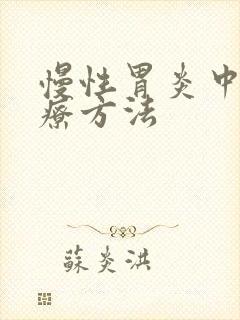 慢性胃炎中
療方法
蘇炎洪